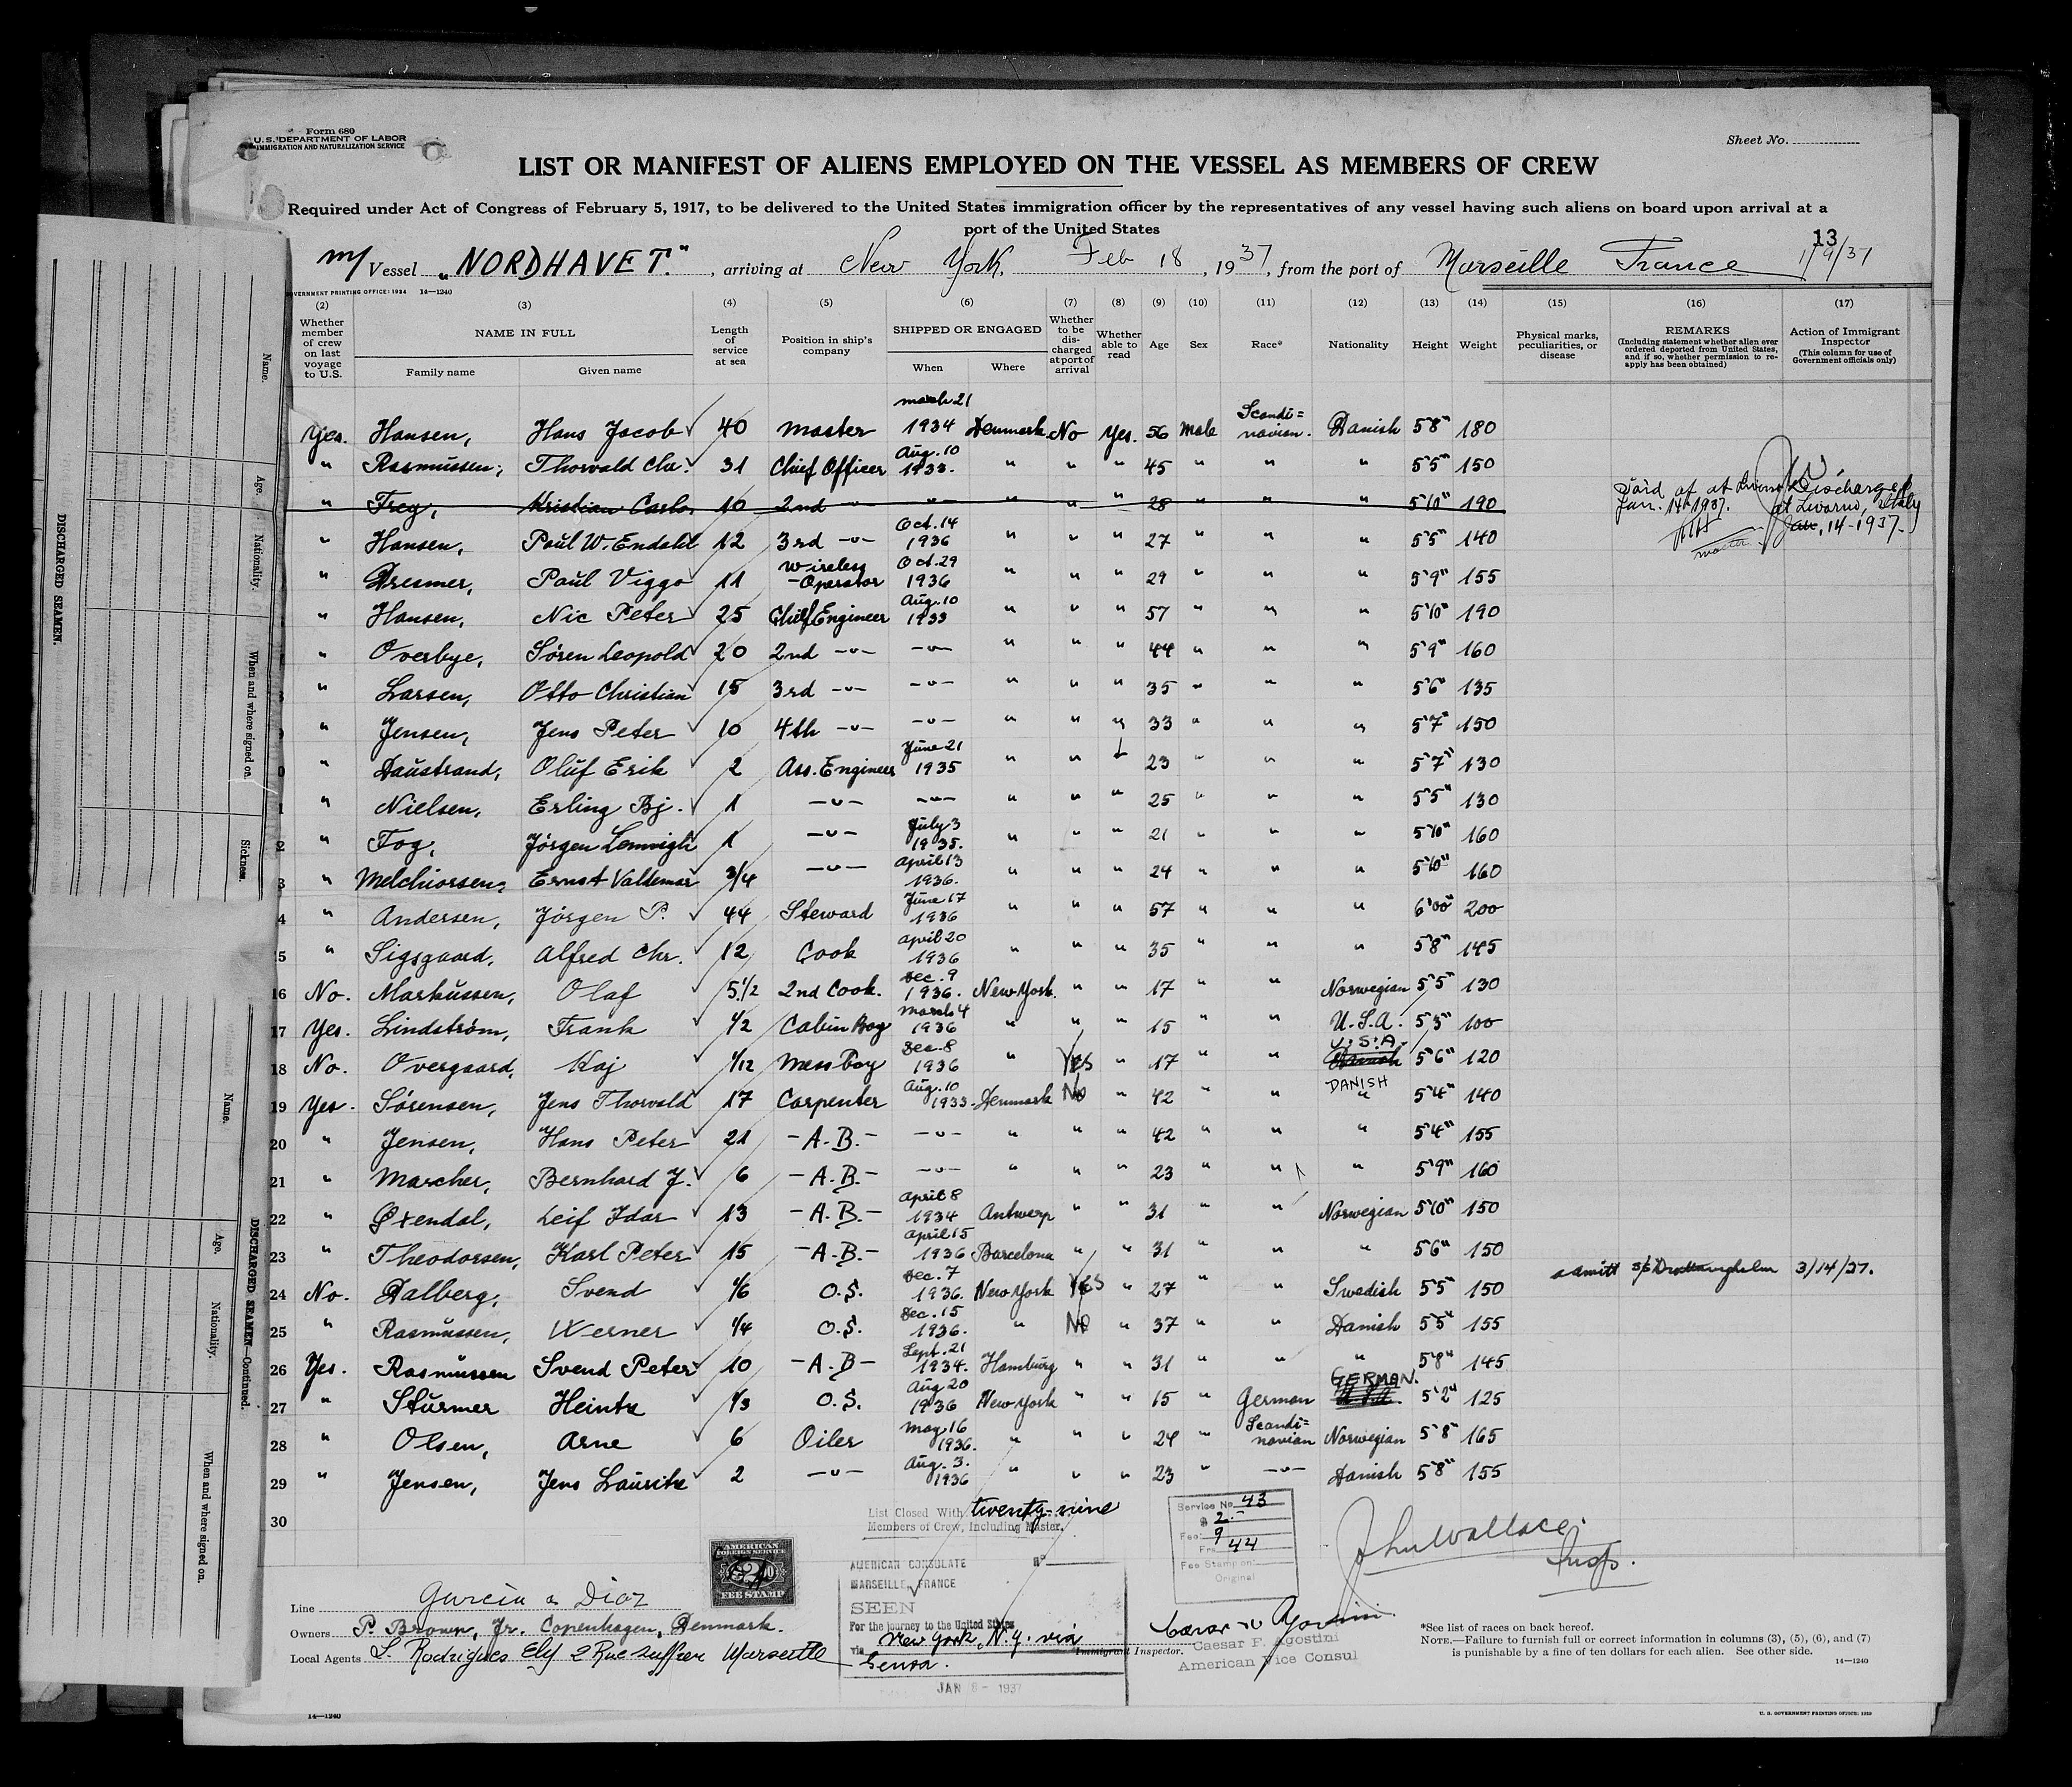 Form 680
U. S. DEPARTMENT OF LABOR
IMMIGRATION AND NATURALIZATION SERVICE
Sheet No.
LIST OR MANIFEST OF ALIENS EMPLOYED ON THE VESSEL AS MEMBERS OF CREW
Required under Act of Congress of February 5, 1917, to be delivered to the United States immigration officer by the representatives of any vessel having such aliens on board upon arrival at a
port of the United States
13
m/ Vessel „NORDHAVET.", arriving at New York, Feb 18, 1937, from the port of Marseille France 1/9/37
GOVERNMENT PRINTING OFFICE: 1934 14—1240
(2) (3) (4) (5) (6) (7) (8) (9) (10) (11) (12) (13) (14) (15) (16) (17)
Whether member of crew on last voyage to U.S.
NAME IN FULL
Family name Given name
Length of service at sea
Position in ship's company
SHIPPED OR ENGAGED
When Where
Whether to be discharged at port of arrival
Whether able to read
Age Sex Race* Nationality Height Weight
Physical marks, peculiarities, or disease
REMARKS
(Including statement whether alien ever ordered deported from United States, and if so, whether permission to reapply has been obtained)
Action of Immigrant Inspector
(This column for use of Government officials only)
Yes. Hansen, Hans Jacob 40 Master March 21 1934 Denmark No Yes. 56 Male Scandi= navian. Danish 5'8" 180
" Rasmussen, Thorvald Chr. 31 Chief Officer Aug. 10 1933. " " " 45 " " " 5'5" 150
" Frey, Kristian Carlo 10 2nd -"- -"- " " " 28 " " " 5'10" 190 Paid of at Livorno Jan. 14th 1937. master. Discharged at Livorno, Italy Jan. 14-1937.
" Hansen, Paul W. Endahl 12 3rd -"- Oct. 14 1936 " " " 27 " " " 5'5" 140
" Dresmer, Paul Viggo 11 Wireless -Operator Oct. 29 1936 " " " 29 " " " 5'9" 155
" Hansen, Nic Peter 25 Chief Engineer Aug. 10 1933 " " " 57 " " " 5'10" 190
" Overbye, Sören Leopold 20 2nd -"- -"- " " " 44 " " " 5'9" 160
" Larsen, Otto Christian 15 3rd -"- -"- " " " 35 " " " 5'6" 135
" Jensen, Jens Peter 10 4th -"- -"- " " " 33 " " " 5'7" 150
" Daustrand, Oluf Erik 2 Ass. Engineer June 21 1935 " " " 23 " " " 5'7" 130
" Nielsen, Erling Bj. 1 -"- -"- " " " 25 " " " 5'5" 130
" Fog, Jörgen Lemvigh 1 -"- July 3 1935. " " " 21 " " " 5'10" 160
" Melchiorsen, Ernst Valdemar 3/4 -"- April 13 1936. " " " 24 " " " 5'10" 160
" Andersen, Jörgen P. 44 Steward June 17 1936 " " " 57 " " " 6'00" 200
" Sigsgaard, Alfred Chr. 12 Cook April 20 1936 " " " 35 " " " 5'8" 145
16 No. Markussen, Olaf 5 1/2 2nd Cook. Dec. 9 1936. New York. " " 17 " " Norwegian 5'5" 130
17 Yes. Lindström, Frank 1/2 Cabin Boy March 4 1936 " " " 15 " " U.S.A. 5'3" 100
18 No. Overgaard, Kaj 1/12 Mess Boy Dec. 8 1936 " Yes " 17 " " Danish U.S.A. 5'6" 120
19 Yes. Sörensen, Jens Thorvald 17 Carpenter Aug. 10 1933. Denmark No " 42 " " DANISH " 5'4" 140
20 " Jensen, Hans Peter 21 -A.B.- -"- " " " 42 " " " 5'4" 155
21 " Marcher, Bernhard J. 6 -A.B.- -"- " " " 23 " " 5'9" 160
22 " Leif Idar 13 -A.B.- April 8 1934 Antwerp " " 31 " " Norwegian 5'10" 150
23 " Theodorsen, Karl Peter 15 -A.B.- April 15 1936 Barcelona " " 31 " " " 5'6" 150
24 No. Dalberg, Svend 1/6 O.S. Dec. 7 1936. New York Yes " 27 " " Swedish 5'5" 150 admitt s/s Drottningholm 3/14/37.
25 " Rasmussen, Werner 1/4 O.S. Dec. 15 1936. " No " 37 " " Danish 5'5" 155
26 Yes. Rasmussen Svend Peter 10 -A.B- Sept. 21 1934. Hamburg " " 31 " " " 5'8" 145
27 " Stürmer Heintz 1/3 O.S. Aug 20 1936 New York " " 15 " German GERMAN. 5'2" 125
28 " Olsen, Arne 6 Oiler May 16 1936. " " " 24 " Scandi= navian Norwegian 5'8" 165
29 " Jensen, Jens Lauritz 2 -"- Aug. 3. 1936 " " " 23 " -"- Danish 5'8" 155
30
List Closed With twenty-nine
Members of Crew, Including Master.
Service No. 43
$ 2.-
Fee: 9
Frs 44
Fee Stamp on
Original
John Wallace.
Insp.
AMERICAN
FOREIGN SERVICE
FEE STAMP
AMERICAN CONSULATE
MARSEILLE, FRANCE
SEEN
For the journey to the United States
via New York, N.Y. via
Genoa.
JAN 8 - 1937
Immigrant Inspector.
Caesar P. Agostini
American Vice Consul
Line Garcia & Diaz
Owners P. Brown, Jr. Copenhagen, Denmark.
Local Agents L. Rodrigues Ely 2 Rue Suffren Marseille
*See list of races on back hereof.
NOTE.—Failure to furnish full or correct information in columns (3), (5), (6), and (7)
is punishable by a fine of ten dollars for each alien. See other side.
14—1240
14—1240
U. S. GOVERNMENT PRINTING OFFICE:
DISCHARGED SEAMEN.
Name.
Age.
Nationality.
When and where signed on.
Sickness.
DISCHARGED SEAMEN—Continued.
Name.
Age.
Nationality.
When and where signed on.